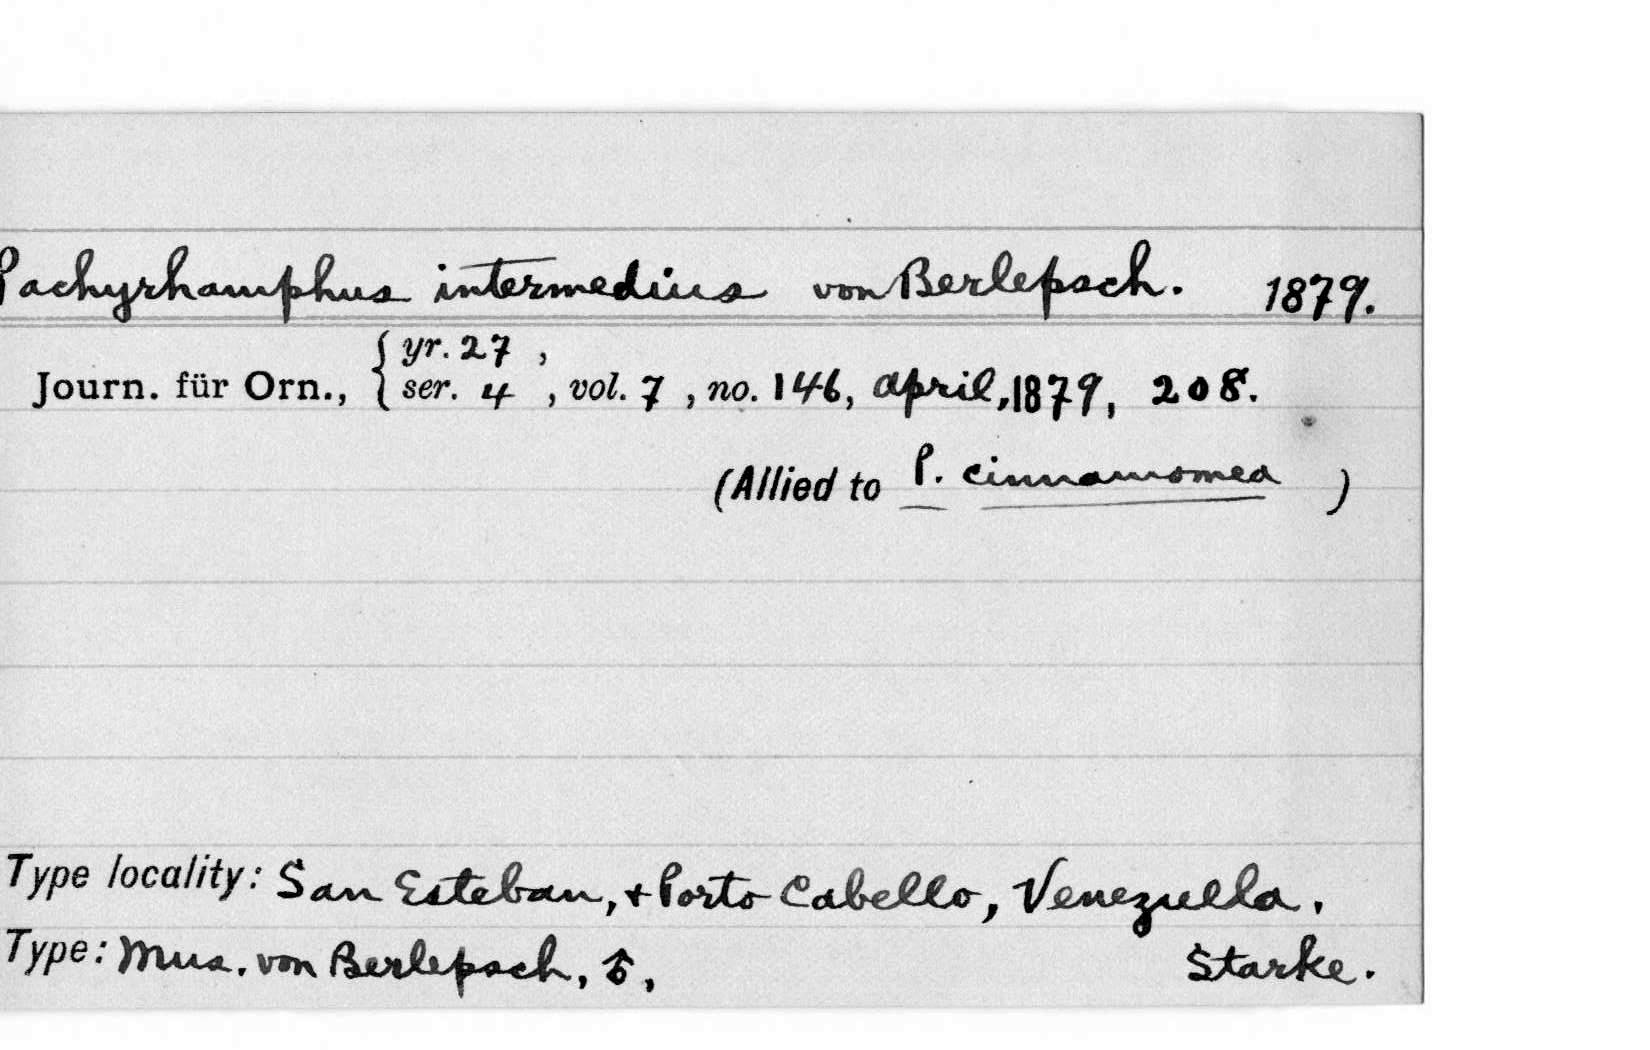 Pachyrhamphus intermedius von Berlepsch. 1879.
Journ. für Orn., { yr. 27 ,
ser. 4 , vol. 7 , no. 146, April, 1879, 208.
(Allied to P. cinnamomea )
Type locality: San Esteban, + Porto Cabello, Venezuela.
Type: Mus. von Berlepsch, ♂, Starke.